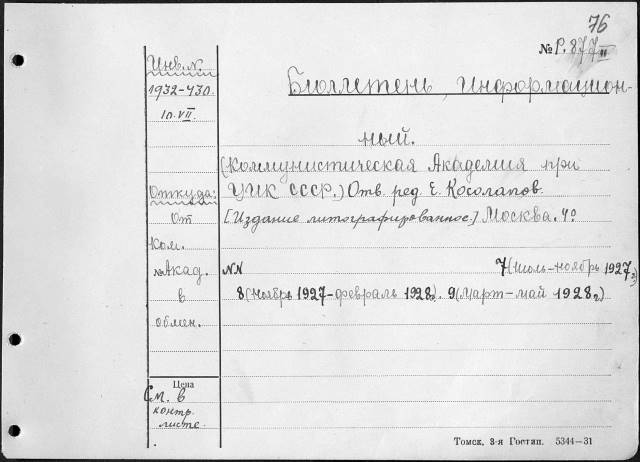 76
№ Р. 877 III
Инв. N.
1932-430.
10.VII.
Бюллетень, Информацион-
ный.
(Коммунистическая Академия при
ЦИК СССР.) Отв. ред. Е. Косолапов.
[Издание литографированное.] Москва. 4º
Откуда:
От
Ком.
№ Акад.
в
обмен.
NN 7 (Июль-ноябрь 1927 г.)
8 (Ноябрь 1927-февраль 1928 г.). 9 (Март-май 1928 г.)
Цена
См. в
контр.
листе.
Томск, 3-я Гостип. 5344—31